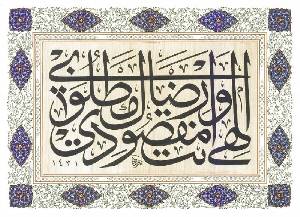 الهي انت مقصودي
ورضاك مطلوبي
١٤٢١